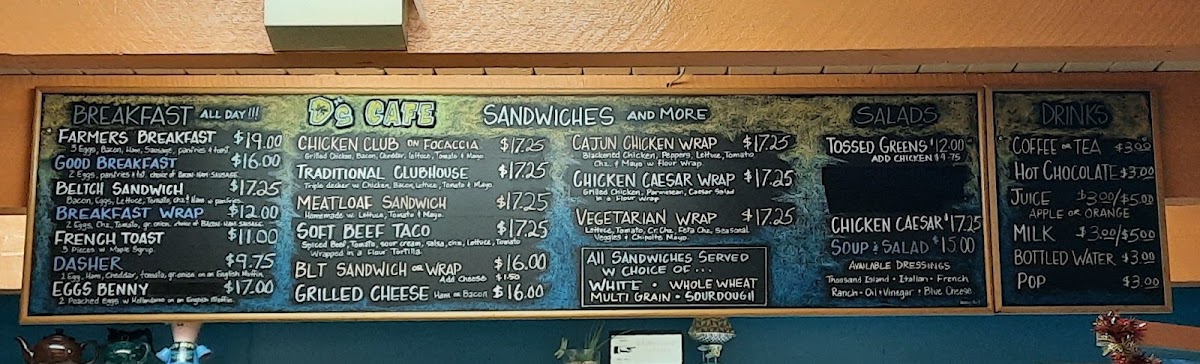 BREAKFAST ALL DAY!!!
FARMERS BREAKFAST $19.00
3 Eggs, Bacon, Ham, Sausage, panfries & toast.
GOOD BREAKFAST $16.00
2 Eggs, panfries & tst. choice of BACON-HAM-SAUSAGE.
BELTCH SANDWICH $17.25
Bacon, Eggs, Lettuce, Tomato, chz & Ham w panfries.
BREAKFAST WRAP $12.00
2 Eggs, Chz, Tomato, gr. onion, choice of BACON-HAM-SAUSAGE.
FRENCH TOAST $11.00
3 Pieces w Maple Syrup.
DASHER $9.75
1 Egg, Ham, Cheddar, tomato, gr.onion on an English Muffin.
EGGS BENNY $17.00
2 Poached Eggs w Hollandaise on an English Muffin.
D's CAFE SANDWICHES AND MORE
CHICKEN CLUB ON FOCACCIA $17.25
Grilled Chicken, Bacon, Cheddar, lettuce, Tomato & Mayo.
TRADITIONAL CLUBHOUSE $17.25
Triple decker w Chicken, Bacon, Lettuce, Tomato & Mayo.
MEATLOAF SANDWICH $17.25
Homemade w. Lettuce, Tomato & Mayo.
SOFT BEEF TACO $17.25
Spiced Beef, Tomato, sour cream, salsa, chz, lettuce, Tomato
Wrapped in a Flour Tortilla.
BLT SANDWICH OR WRAP $16.00
Add Cheese $1.50
GRILLED CHEESE Ham or Bacon $16.00
CAJUN CHICKEN WRAP $17.25
Blackened Chicken, Peppers, Lettuce, Tomato,
Chz. & Mayo w Flour Wrap.
CHICKEN CAESAR WRAP $17.25
Grilled Chicken, Parmesean, Caesar Salad
in a Flour Wrap
VEGETARIAN WRAP $17.25
Lettuce, Tomato, Cr. Chz, Feta Chz, Seasonal
Veggies & Chipolte Mayo.
All SANDWICHES SERVED
W CHOICE OF...
WHITE • WHOLE WHEAT
MULTI GRAIN • SOURDOUGH
SALADS
TOSSED GREENS $12.00
ADD CHICKEN $9.75
CHICKEN CAESAR $17.25
SOUP & SALAD $15.00
AVAILABLE DRESSINGS
Thousand Island • Italian • French
Ranch • Oil & Vinegar • Blue Cheese
DRINKS
COFFEE OR TEA $3.00
HOT CHOCOLATE $3.00
JUICE $3.00/$5.00
APPLE OR ORANGE
MILK $3.00/$5.00
BOTTLED WATER $3.00
POP $3.00